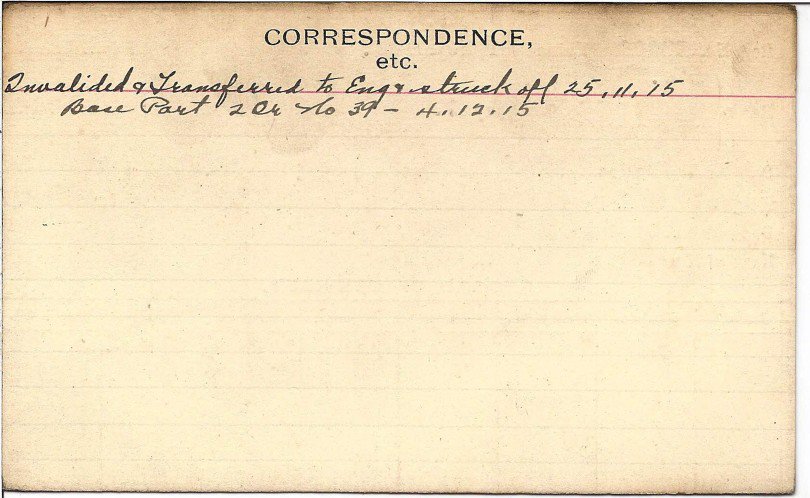 CORRESPONDENCE,
etc.
Invalided & Transferred to Eng & struck off 25.11.15
Base Part 2 Or No 39 - 4.12.15